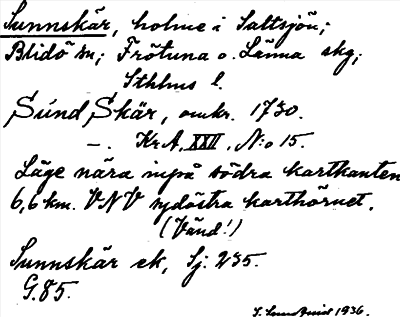 Sunnskär, holme i Saltsjön;
Blidö sn; Frötuna o. Länna skg;
Sthlms l.
Sund Skär, omkr. 1730.
—. Kr.A, XXII, N:o 15.
Läge nära inpå södra kartkanten
6,6 km. VNV sydöstra karthörnet.
(Vänd!)
Sunnskär ek, Sj. 235.
G.85.
1936.